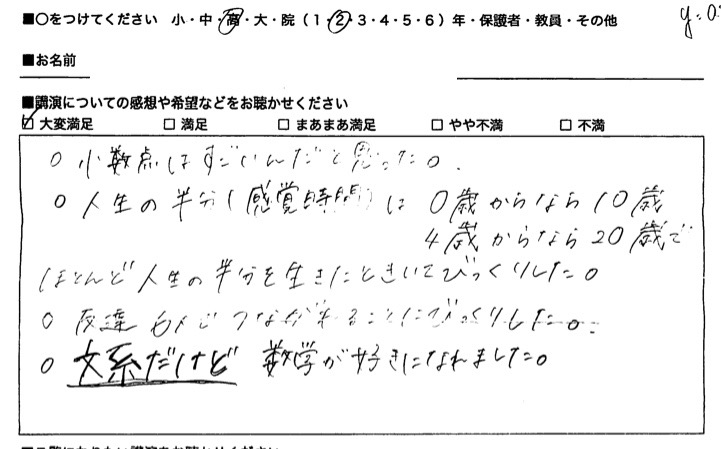 ■○をつけてください 小・中・高・大・院（1・2・3・4・5・6）年・保護者・教員・その他
y=0.
■お名前
■講演についての感想や希望などをお聴かせください
☑ 大変満足 □ 満足 □ まあまあ満足 □ やや不満 □ 不満
○ 小数点はすごいんだと思った。
○ 人生の半分（感覚時間）は 0歳からなら10歳
4歳からなら20歳で
ほとんど人生の半分を生きたときいてびっくりした。
○ 友達6人でつながれることにびっくりした。
○ 文系だけど 数学が好きになれました。